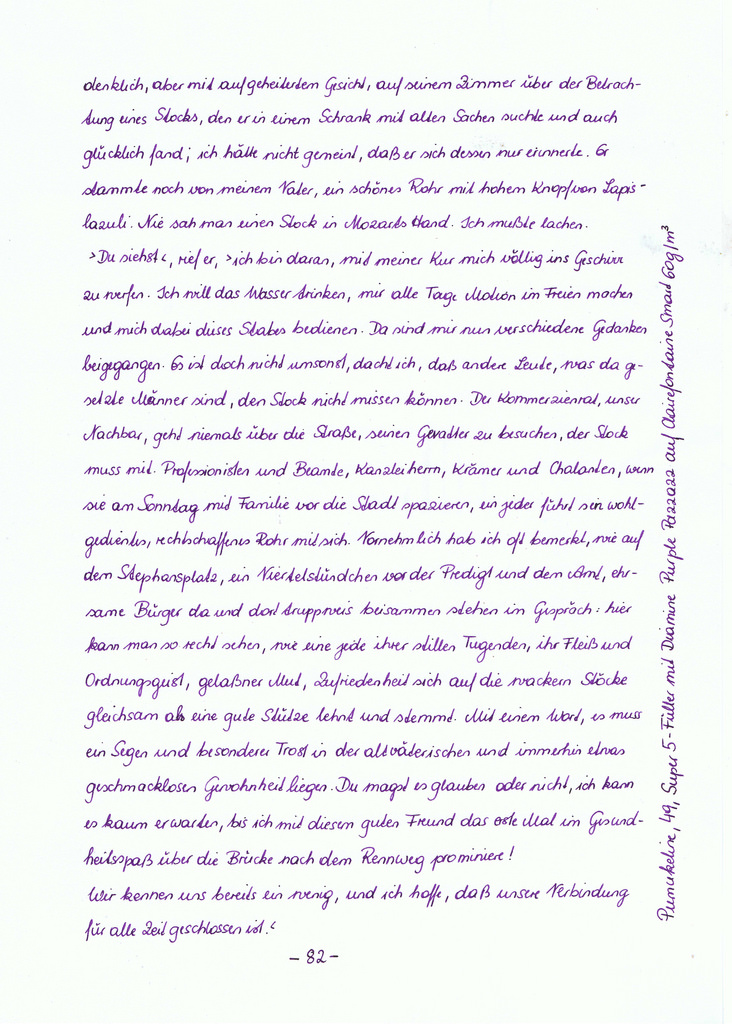 denklich, aber mit aufgeheitertem Gesicht, auf seinem Zimmer über der Betrach-
tung eines Stocks, den er in einem Schrank mit alten Sachen suchte und auch
glücklich fand; ich hätte nicht gemeint, daß er sich dessen nur erinnerte. Er
stammte noch von meinem Vater, ein schönes Rohr mit hohem Knopf von Lapis-
lazuli. Nie sah man einen Stock in Mozarts Hand. Ich mußte lachen.
>Du siehst<, rief er, >ich bin daran, mit meiner Kur mich völlig ins Geschirr
zu werfen. Ich will das Wasser trinken, mir alle Tage Motion im Freien machen
und mich dabei dieses Stabes bedienen. Da sind mir nun verschiedene Gedanken
beigegangen. Es ist doch nicht umsonst, dacht ich, daß andere Leute, was da ge-
setzte Männer sind, den Stock nicht missen können. Der Kommerzienrat, unser
Nachbar, geht niemals über die Straße, seinen Gevatter zu besuchen, der Stock
muss mit. Professionisten und Beamte, Kanzleiherrn, Krämer und Chalanten, wenn
sie am Sonntag mit Familie vor die Stadt spazieren, ein jeder führt sein wohl-
gedientes, rechtschaffenes Rohr mit sich. Vornehmlich hab ich oft bemerkt, wie auf
dem Stephansplatz, ein Viertelstündchen vor der Predigt und dem Amt, ehr-
same Bürger da und dort truppweis beisammen stehen im Gespräch: hier
kann man so recht sehen, wie eine jede ihrer stillen Tugenden, ihr Fleiß und
Ordnungsgeist, gelaßner Mut, Zufriedenheit sich auf die wackern Stöcke
gleichsam als eine gute Stütze lehnt und stemmt. Mit einem Wort, es muss
ein Segen und besonderer Trost in der altväterischen und immerhin etwas
geschmacklosen Gewohnheit liegen. Du magst es glauben oder nicht, ich kann
es kaum erwarten, bis ich mit diesem guten Freund das erste Mal im Gesund-
heitsspaß über die Brücke nach dem Rennweg prominiere!
Wir kennen uns bereits ein wenig, und ich hoffe, daß unsere Verbindung
für alle Zeit geschlossen ist.<
- 82 -
Pumukeline, 49, Super 5-Füller mit Diamine Purple Pazzazz auf Clairefontaine Smart 60g/m³